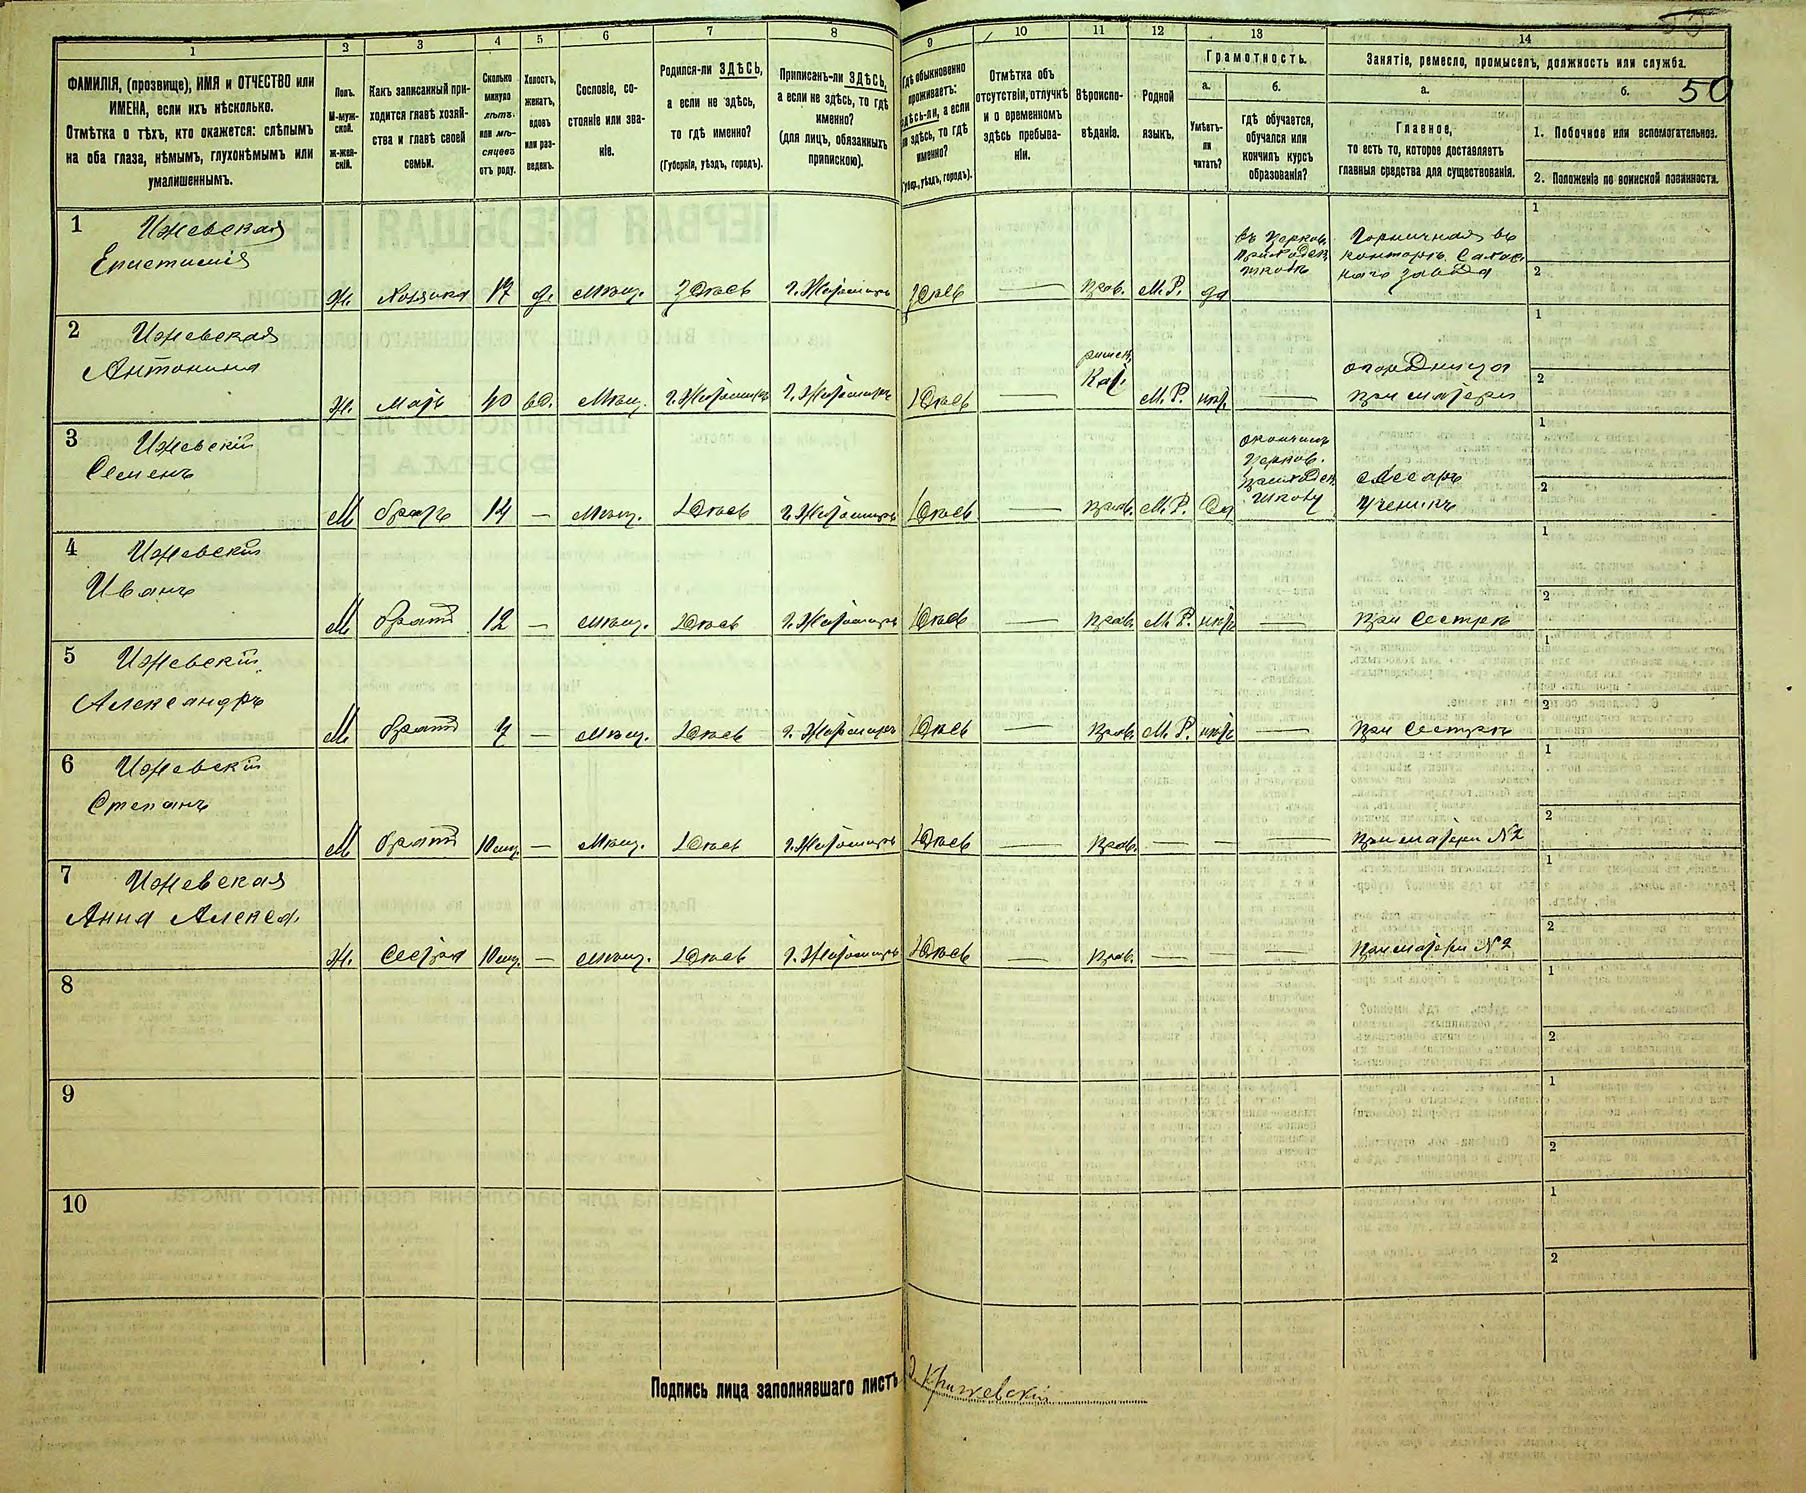 50
1 2 3 4 5 6 7 8 9 10 11 12 13 14
ФАМИЛІЯ, (прозвище), ИМЯ и ОТЧЕСТВО или
ИМЕНА, если ихъ нѣсколько.
Отмѣтка о тѣхъ, кто окажется: слѣпымъ
на оба глаза, нѣмымъ, глухонѣмымъ или
умалишеннымъ.
Полъ.
М-муж-
ской.
Ж-жен-
скій.
Какъ записанный при-
ходится главѣ хозяй-
ства и главѣ своей
семьи.
Сколько
минуло
лѣтъ
или мѣ-
сяцевъ
отъ роду.
Холостъ,
женатъ,
вдовъ
или раз-
веденъ.
Сословіе, со-
стояніе или зва-
ніе.
Родился-ли ЗДѢСЬ,
а если не здѣсь,
то гдѣ именно?
(Губернія, уѣздъ, городъ).
Приписанъ-ли ЗДѢСЬ,
а если не здѣсь, то гдѣ
именно?
(для лицъ, обязанныхъ
припискою).
Гдѣ обыкновенно
проживаетъ:
здѣсь-ли, а если
не здѣсь, то гдѣ
именно?
(Губер., уѣздъ, городъ).
Отмѣтка объ
отсутствіи, отлучкѣ
и о временномъ
здѣсь пребыва-
ніи.
Вѣроиспо-
вѣданіе.
Родной
языкъ.
Грамотность.
а.
Умѣетъ-
ли
читать?
б.
гдѣ обучается,
обучался или
кончилъ курсъ
образованія?
Занятіе, ремесло, промыселъ, должность или служба.
а.
Главное,
то есть то, которое доставляетъ
главныя средства для существованія.
б.
1. Побочное или вспомогательное.
2. Положеніе по воинской повинности.
1 Ижевская
Епистимія
Ж. Хозяйка 17 д. мѣщ. Здѣсь г. Житомиръ Здѣсь — прав. М.Р. да
въ Церков.
приходск.
школѣ
Горничная въ
конторѣ Сахар
наго завода
1
2
2 Ижевская
Антонина
Ж. мать 40 вд. Мѣщ. г. Житомиръ г. Житомиръ Здѣсь —
римск.
Кат. М.Р. нѣт —
при матери
1
2
3 Ижевскій
Семенъ
М братъ 14 — мѣщ. Здѣсь г. Житомиръ Здѣсь — прав. М.Р. Да
окончилъ
Церков.
приходск.
школу
слесарь
ученикъ
1
2
4 Ижевскій
Иванъ
М братъ 12 — мѣщ. Здѣсь г. Житомиръ Здѣсь — прав. М.Р. нѣт — при сестрѣ
1
2
5 Ижевскій
Александръ
М братъ — мѣщ. Здѣсь г. Житомиръ Здѣсь — прав. М.Р. нѣт — при сестрѣ
1
2
6 Ижевскій
Степанъ
М братъ 10 мѣц. — Мѣщ. Здѣсь г. Житомиръ Здѣсь — прав. — — — при матери №2
1
2
7 Ижевская
Анна Алекса.
Ж. сестра 10 мѣц. — мѣщ. Здѣсь г. Житомиръ Здѣсь — прав. — — — при матери №2
1
2
8
1
2
9
1
2
10
1
2
Подпись лица заполнявшаго листъ Крижевскій